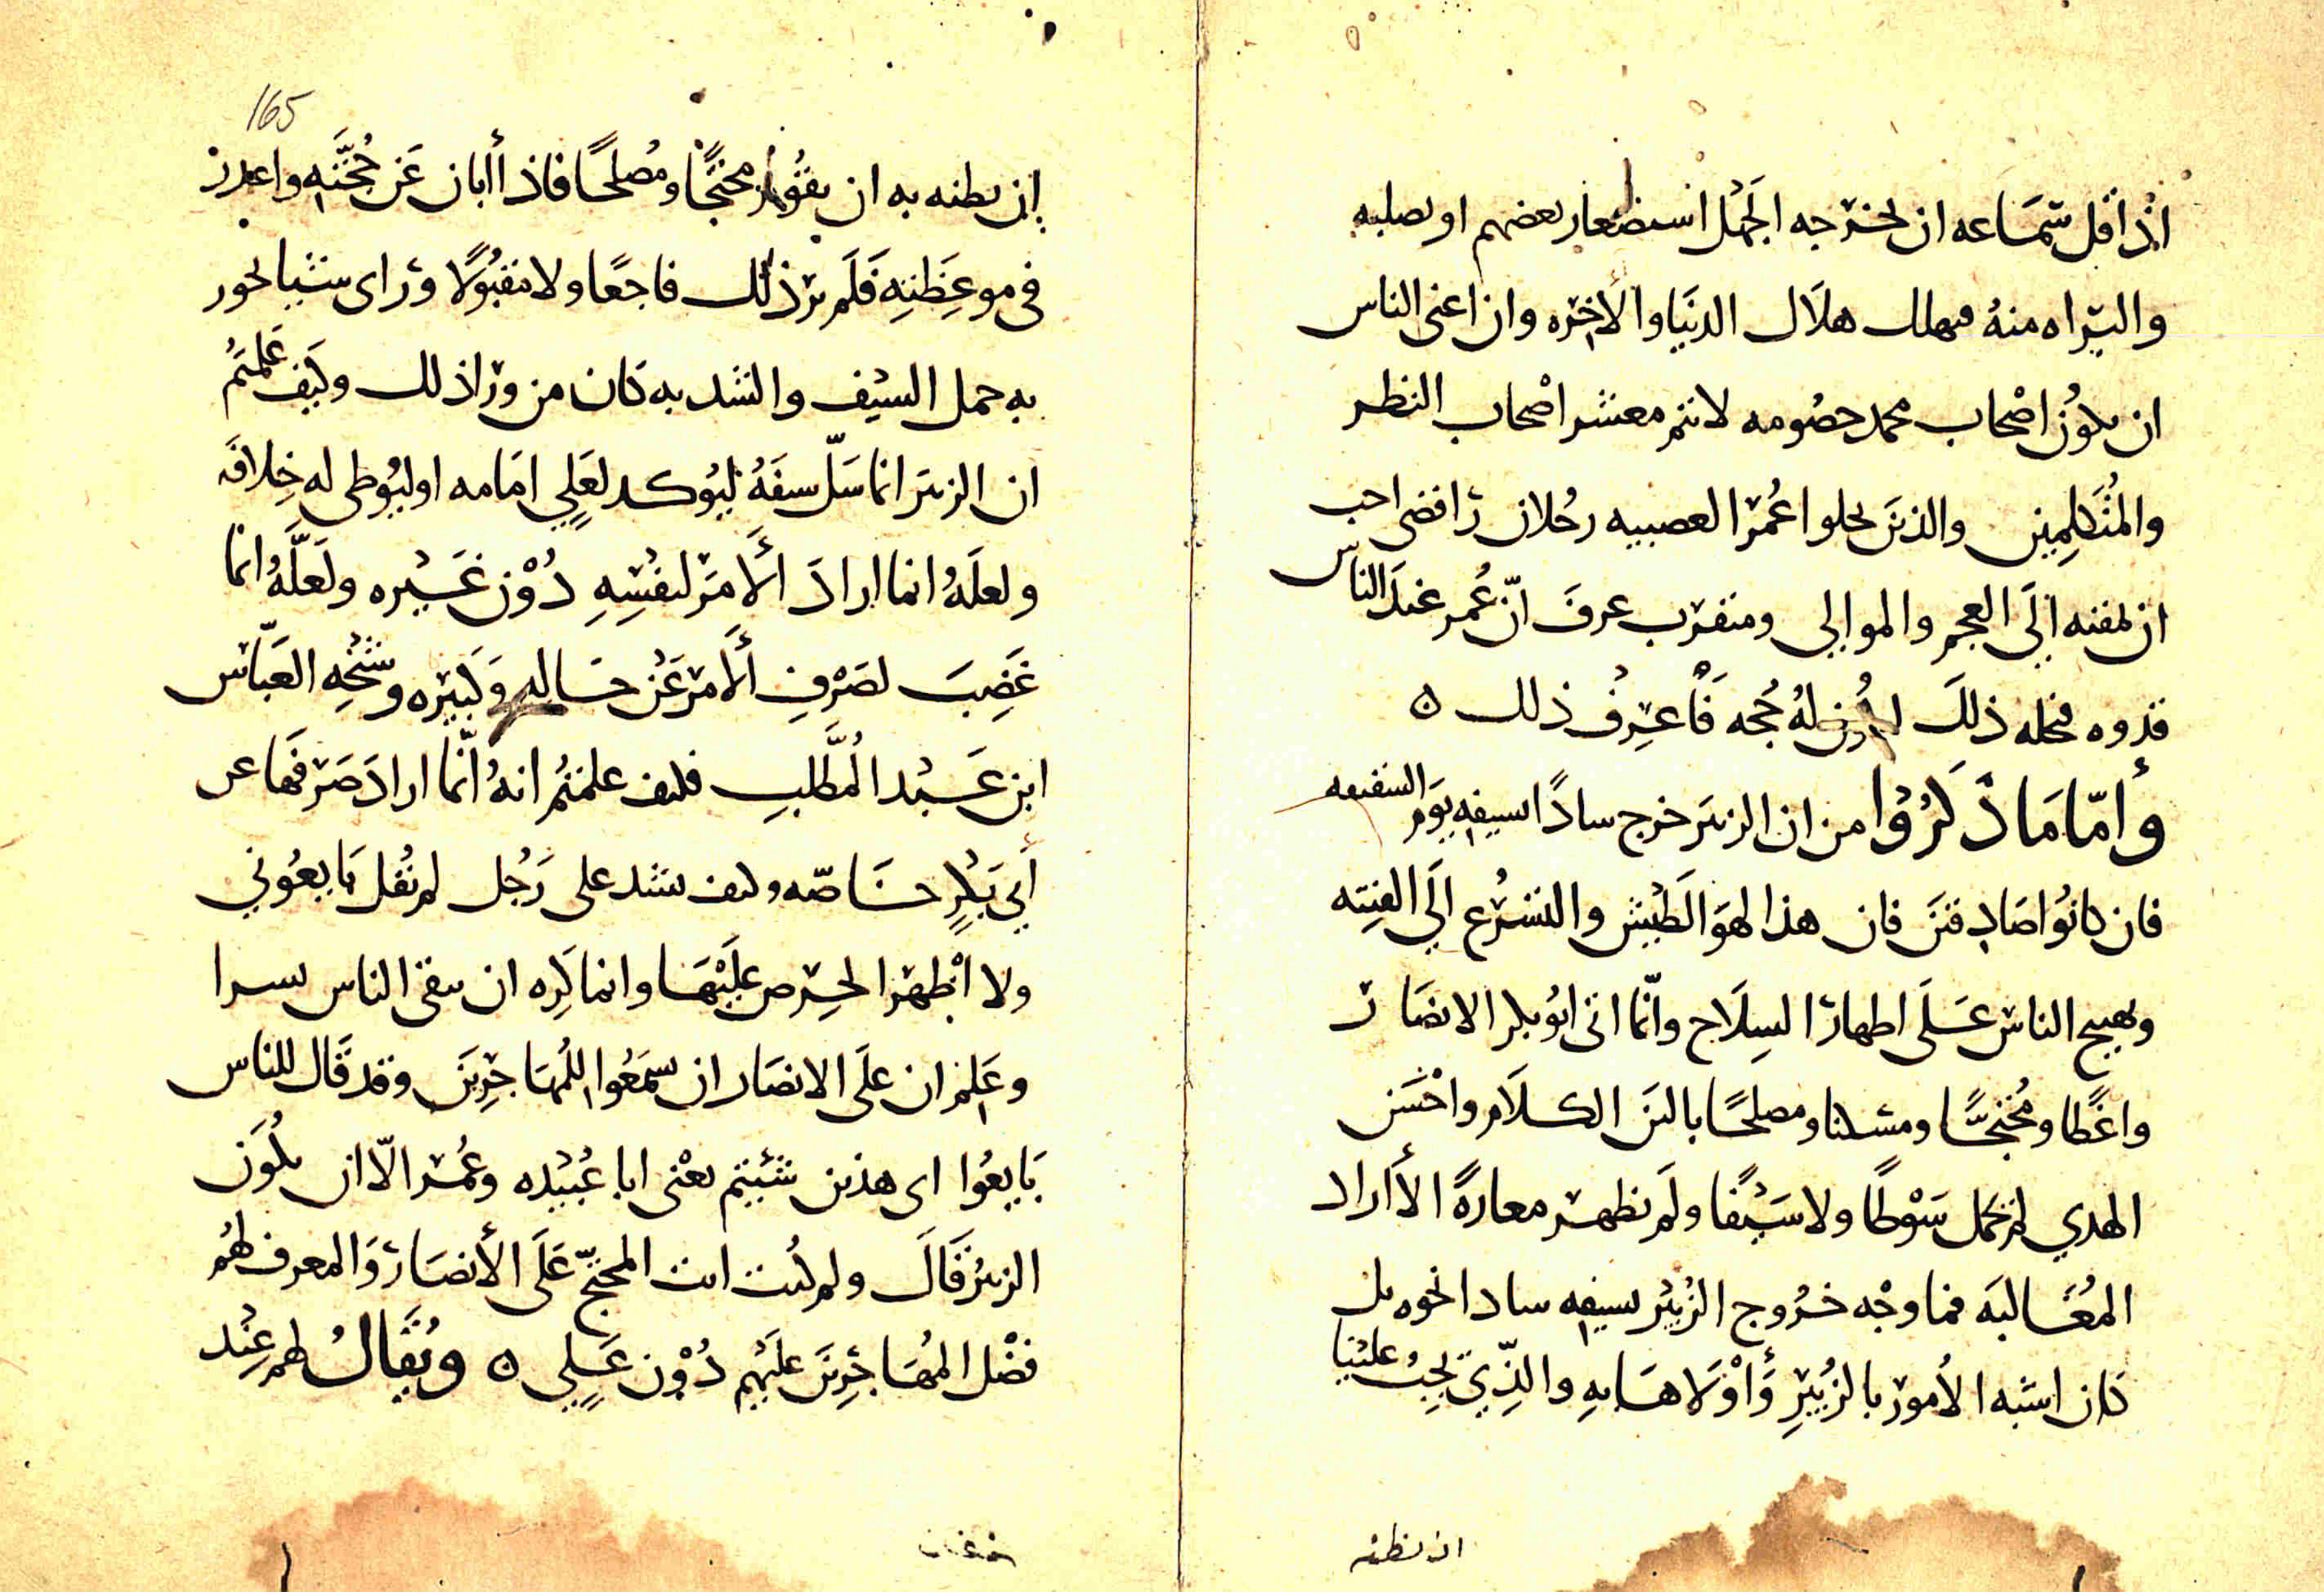 اذا قل سماعه ان يخرجه الجهل استصغار بعضهم او بصلبه
والبراه منه فهلك هلاك الدنيا والاخره وان اغنى الناس
ان يكون اصحاب محمد خصومه لانتم معشر اصحاب النظر
والمتكلمين والذين نحلوا عمر العصبيه رجلان رافضى احب
ان يمقته الى العجم والموالي ومتقرب عرف ان عمر عند الناس
قدوه فنحله ذلك له حجه فاعرف ذلك ه
وأما ما ذكروا من ان الزبير خرج سادا بسيفه يوم السقيفه
فان كانوا صادقين فان هذا لهو الطيش والتسرع الى الفتنه
وتهييج الناس على اظهار السلاح وانما اتى ابو بكر الانصار
واعظا ومحتجا ومسكنا ومصلحا بالين الكلام واحسن
الهدي لم يحمل سوطا ولا سيفا ولم يظهر معازه الا اراد
المغالبه فما وجه خروج الزبير بسيفه سادا نحوه بل
كان اشبه الامور بالزبير وأولاها به والذي يجب علينا
ان نظنه
165
ان نظنه به ان يقول محتجا ومصلحا فاذا أبان عن حجته واعذر
فى موعظته فلم ير ذلك ناجعا ولا مقبولا وراى شيئا يجوز
به حمل السيف والشد به كان من ورا ذلك وكيف علمتم
ان الزبير انما سل سيفه ليوكد لعلي امامه او ليوطى له خلافه
ولعله انما اراد ألامر لنفسه دون غيره ولعله انما
غضب لصرف ألامر عن خاله وكبيره وشيخه العباس
ابن عبد المطلب فكيف علمتم انه انما اراد صرفها عن
أبي بكر خاصه وكيف يشد على رجل لم يقل بايعوني
ولا اظهر الحرص عليها وانما كره ان يبقى الناس نشرا
وعلم ان على الانصار ان يسمعوا للمهاجرين وقد قال للناس
بايعوا اى هذين شئتم يعنى ابا عبيده وعمر الا ان يكون
الزبير قال ولم كنت انت المحتج على الأنصار والمعرف لهم
فضل المهاجرين عليهم دون علي ه ويقال لهم عند